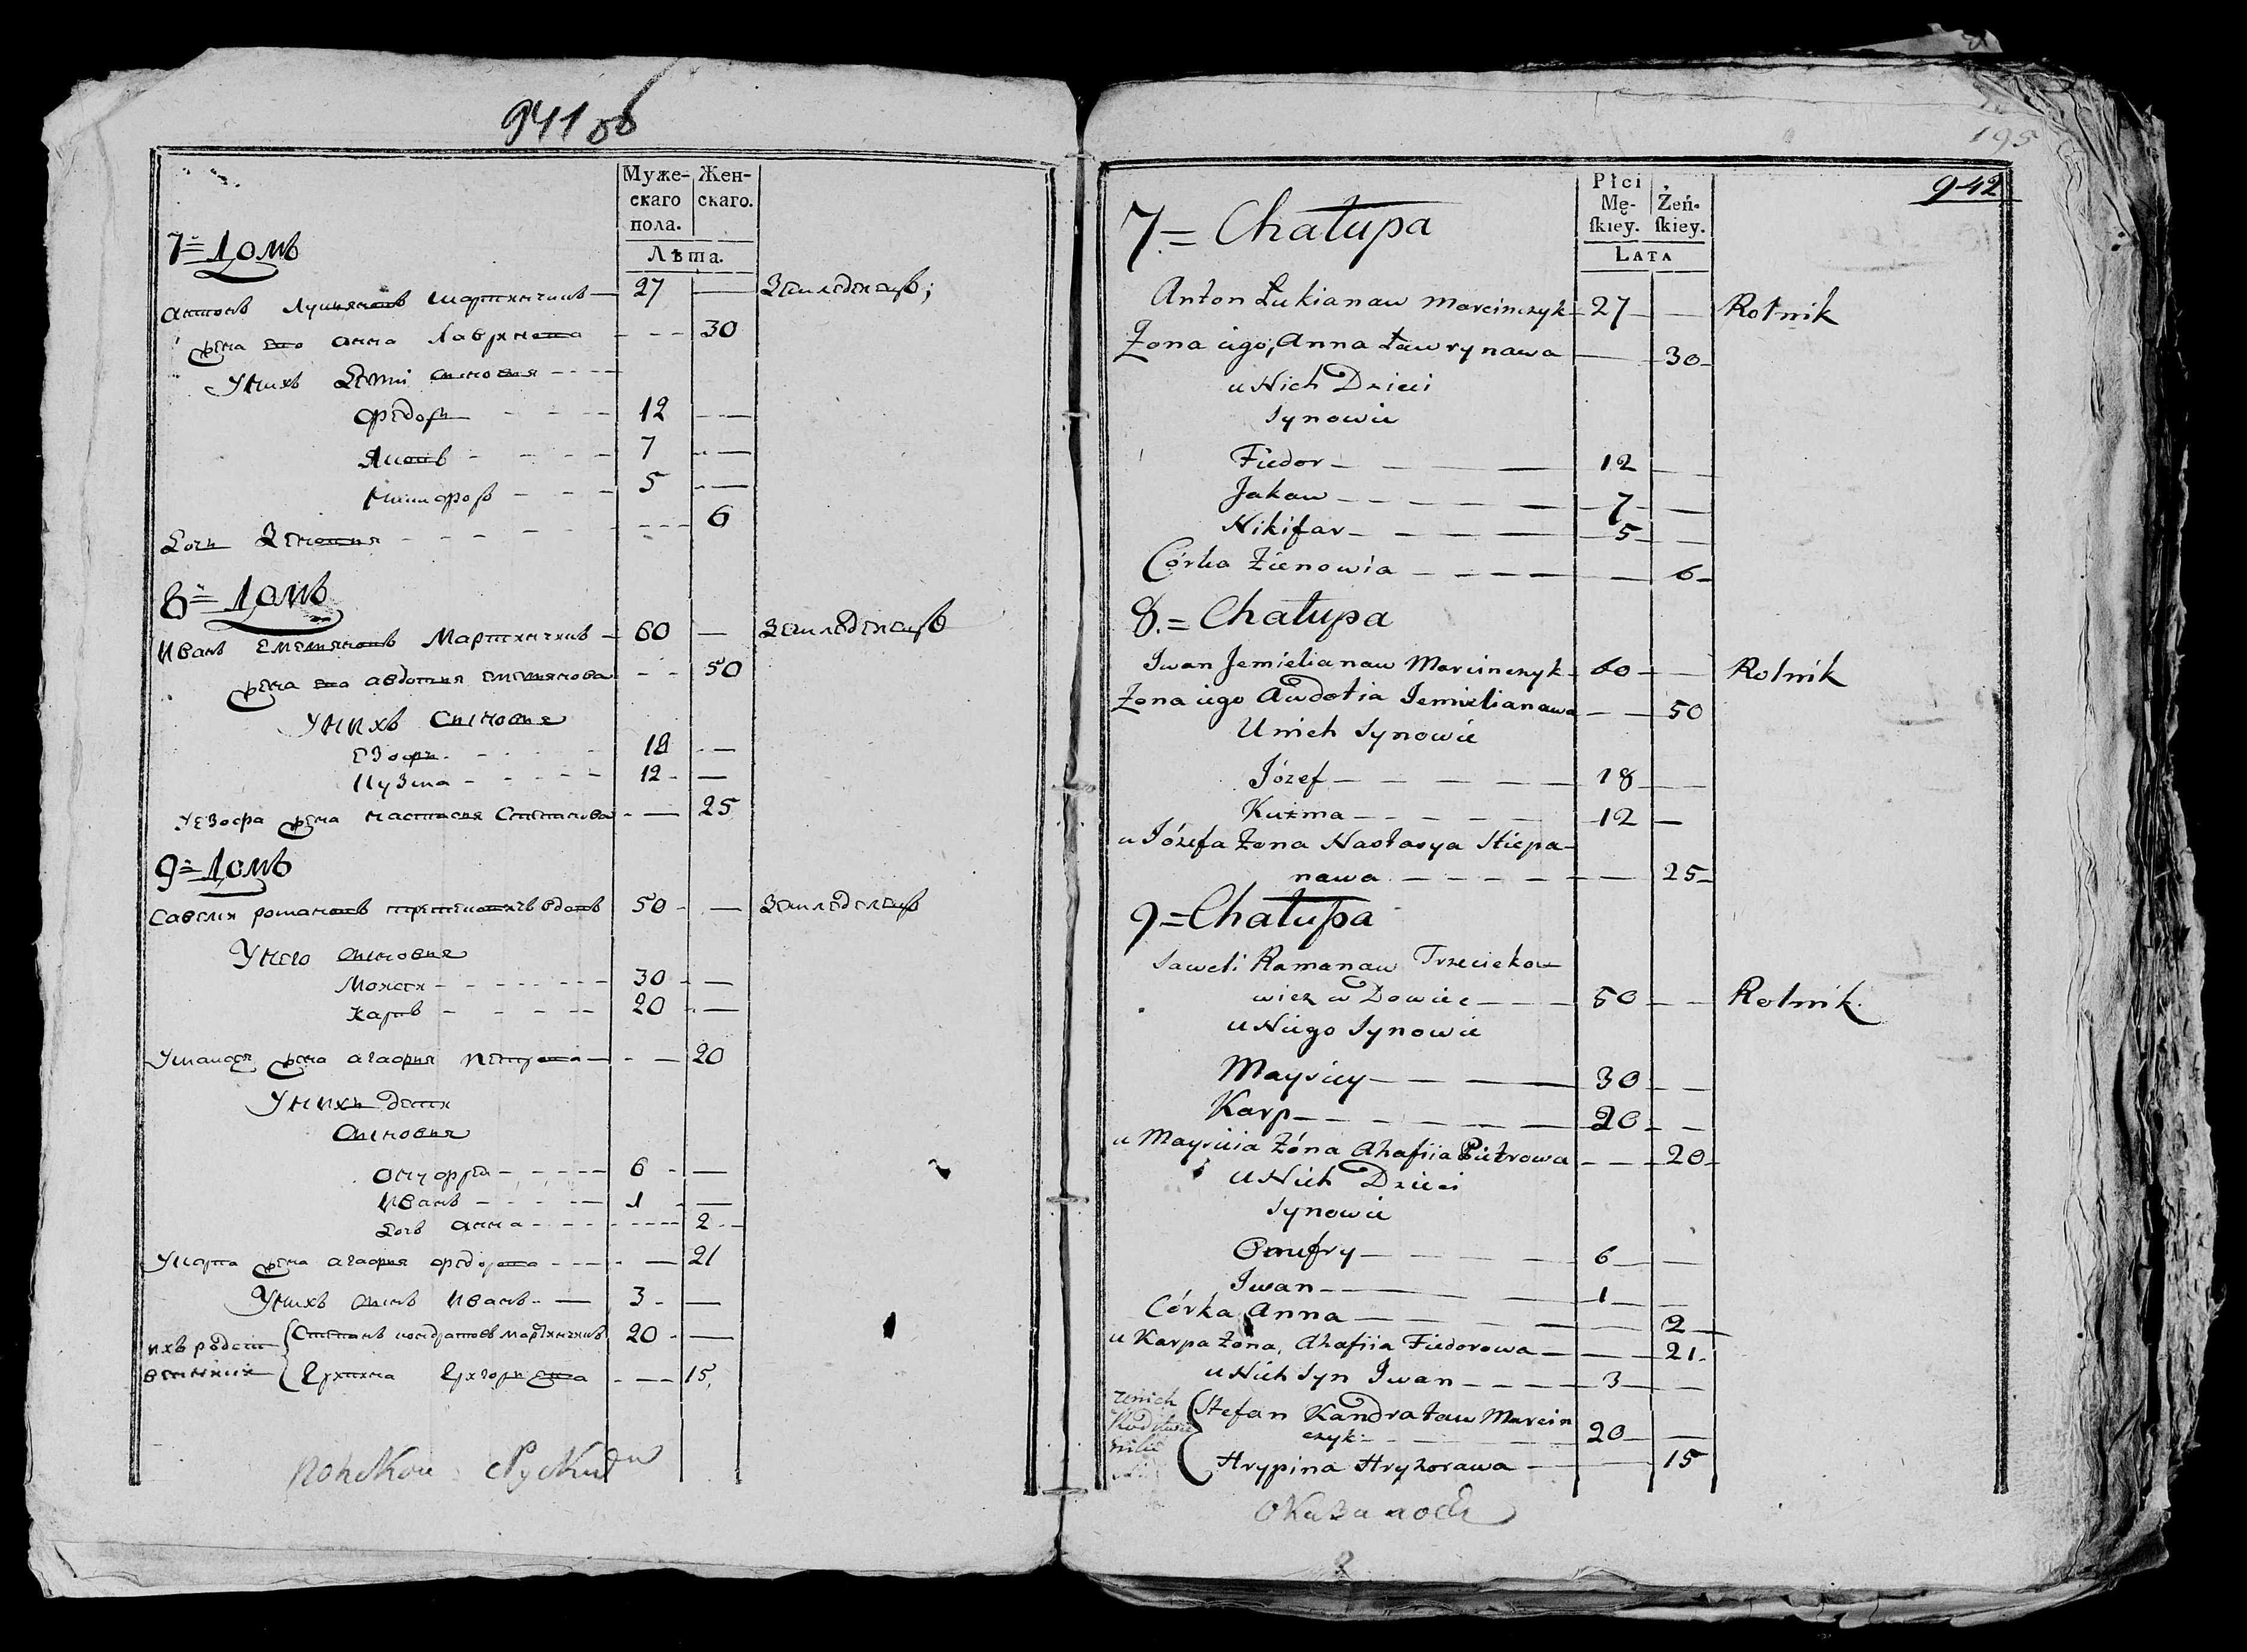 941 об
Муже-
скаго
пола.
Жен-
скаго.
Лѣта.
7= Домъ
Антонъ Лукяновъ Мартинчикъ — 27 — Земледелецъ;
жена его Анна Лавринова - - - 30
У нихъ дети синовия - - - -
Федоръ - - - 12 - —
Яковъ - - - - 7 - —
Никифоръ - - - 5 - —
Дочь Зеновия - - - - 6
8= Домъ
Иванъ Емелияновъ Мартинчикъ — 60 — Земледелецъ
жена его Авдотия Емелиянова - - 50
У нихъ синовия
Езофъ - - - - 18 - —
Кузма - - - - 12 - —
У Езофа жена Настасия Степанова - — 25
9= Домъ
Савелий Романовъ вдовъ 50 - — Земледелецъ
У него синовия
Моисей - - - - 30 - —
Карпъ - - - - 20 - —
жена Агафия Петрова — - — 20
У нихъ дети
Синовия
Онуфрей - - - - 6 - —
Иванъ - - - - 1 - —
Дочъ Анна - - - - 2 - -
У Карпа жена Агафия Федорова - - - — 21
У нихъ синъ Иванъ - — 3 - —
Степанъ Кондратовъ Мартинчикъ 20 - —
ихъ родст
венники
- - — 15,
195
942
Płci
Mę-
ſkiey.
Żeń-
ſkiey.
LATA
7.= Chałupa
Anton Łukianaw Marcinczyk — 27 — — Rolnik
Żona iego, Anna Ławrynawa — 30 —
u Nich Dzieci
Synowie
Fiedor — — — 12 —
Jakaw — — — — 7 — —
Nikifar — — — — 5 — —
Córka Zienowia — — — — — 6 —
8.= Chałupa
Iwan Jemielianaw Marcinczyk — 60 — — Rolnik
Żona iego Awdotia Jemielianawa — — 50
U nich Synowie
Józef — — — — 18 — —
Kuźma — — — — 12 —
u Józefa Żona Nastasya Stiepa-
nawa — — — — — — 25 —
9 = Chałupa
Saweli Ramanaw Trzecieko-
wicz w Dowiec — — — 50 — — Rolnik.
u Niego Synowie
Maysiey — — — 30 — —
Karp — — — — — 20 — —
u Maysieia Żóna Ahafiia Pietrowa — — — 20 —
u Nich Dzieci
Synowie
Onufry — — — — 6 — —
Iwan — — — — 1 — —
Córka Anna — — — — — 2 —
u Karpa Żona, Ahafiia Fiedorowa — — — 21.
u Nich Syn Iwan — — — — 3 — —
Stefan Kandrataw Marcin
czyk — — — — — 20 — —
Hrypina Hryhorawa — — — 15
оказалось